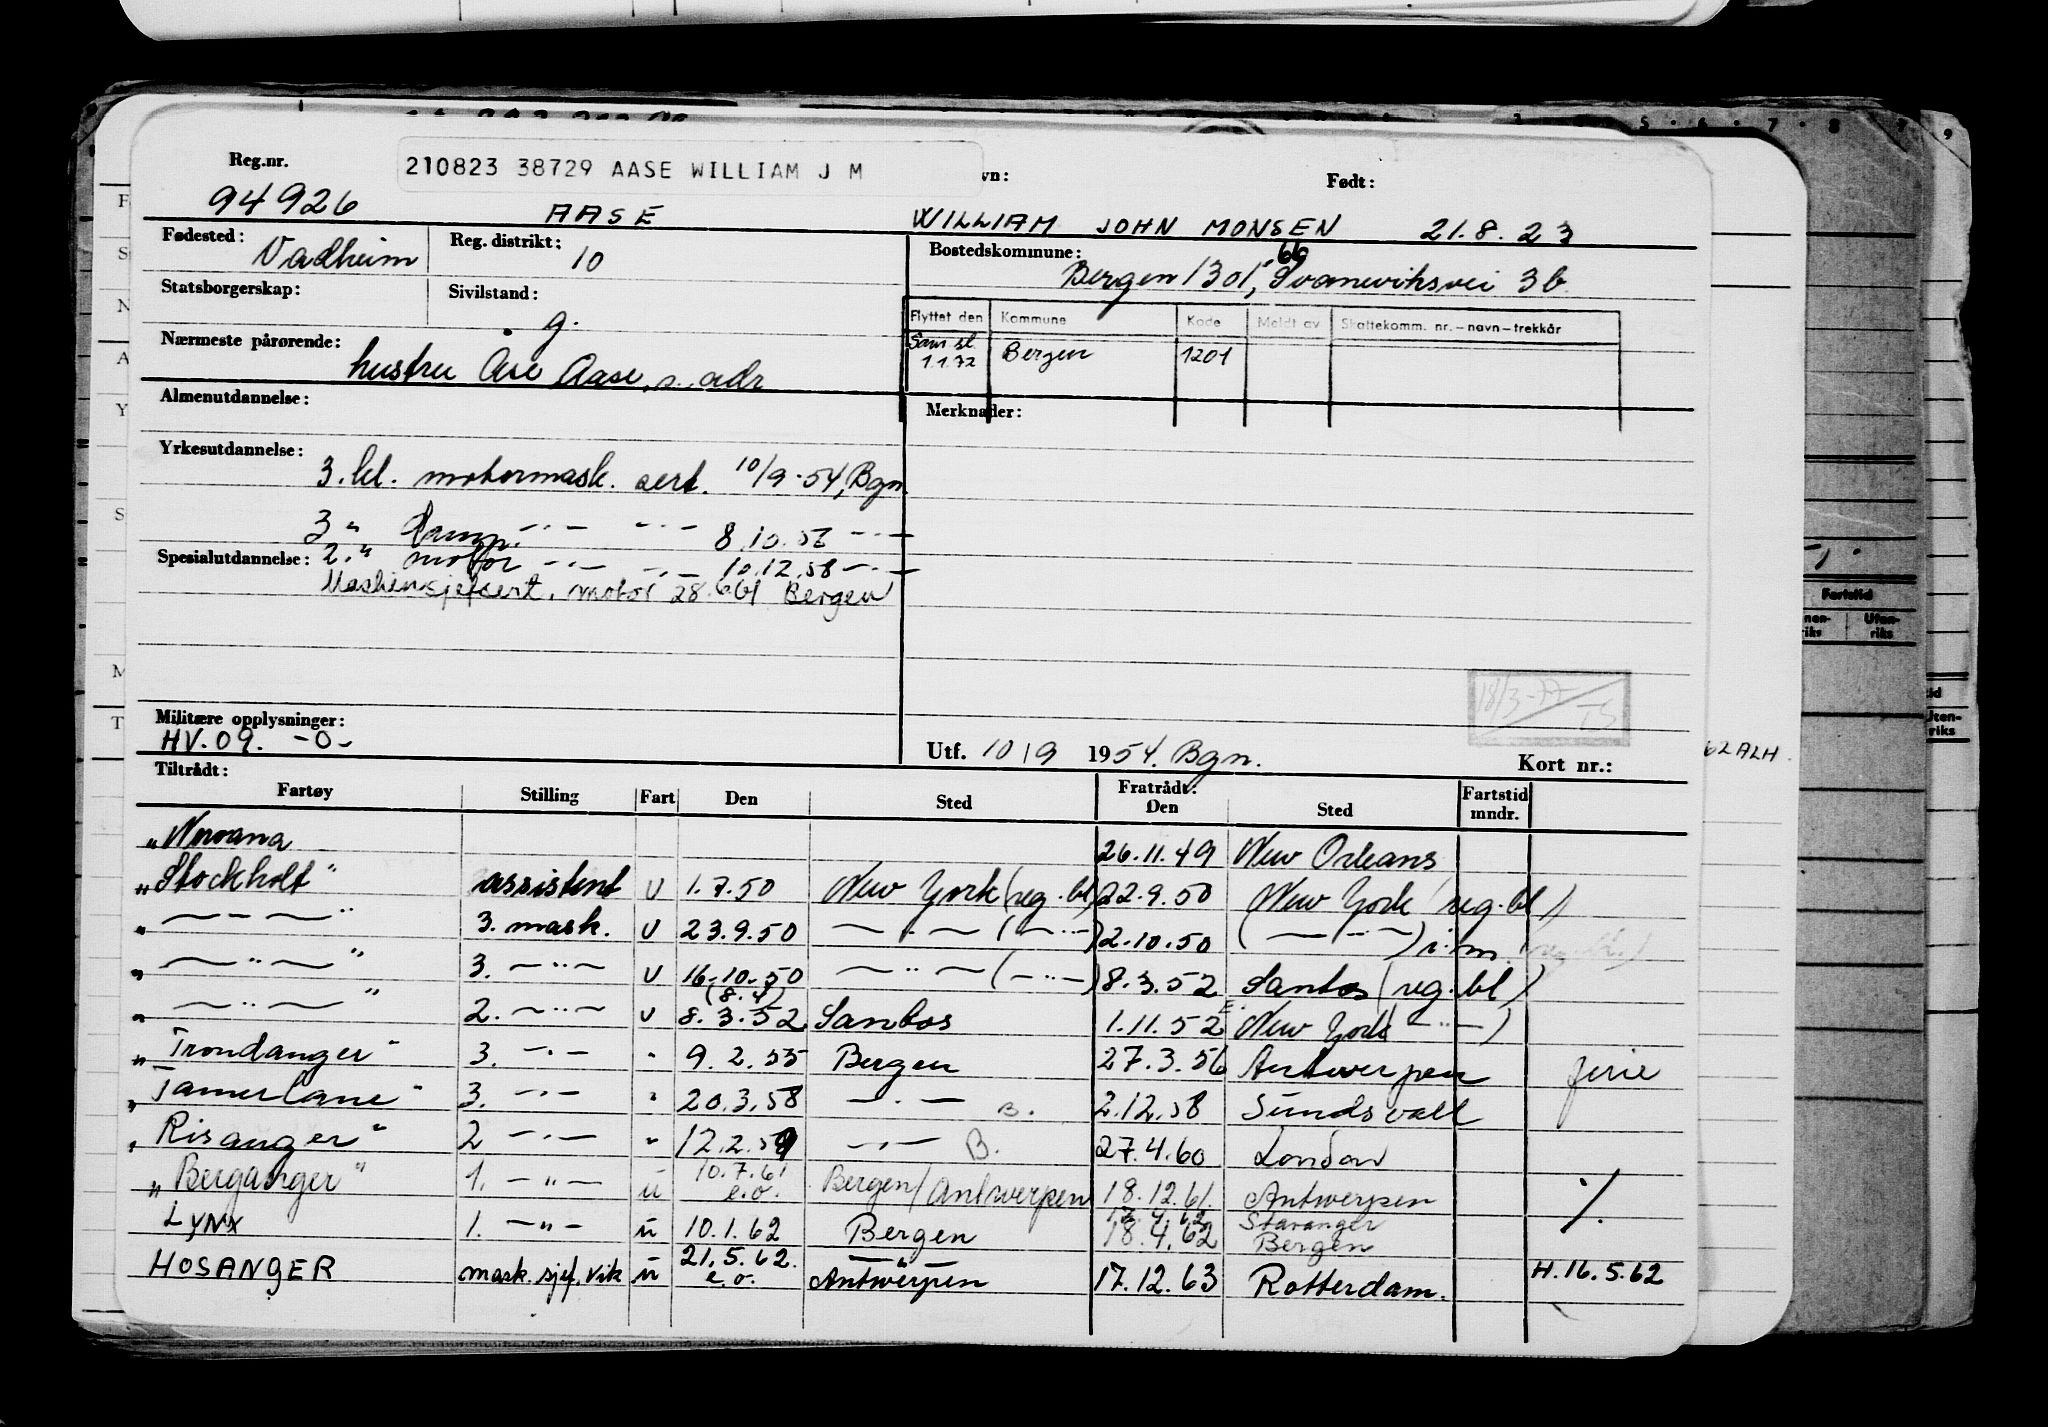 Reg.nr.
210823 38729 AASE WILLIAM J M
vn:
Født:
94926
AASE
WILLIAM JOHN MONSEN 21.8.23
Fødested:
Vadheim
Reg. distrikt:
10
Bostedskommune:
66
Bergen 1301, Svaneviksvei 3b
Statsborgerskap:
Sivilstand:
g.
Flyttet den Kommune Kode Meldt av Skattekomm. nr.-navn-trekkår
Sam sl
1.1.72 Bergen 1201
Nærmeste pårørende:
hustru Åse Aase, s. adr
Almenutdannelse:
Merknader:
Yrkesutdannelse:
3. kl. motormask. sert. 10/9-54, Bgn.
3 " Damp. -"- -"- 8.10.58 -"-
Spesialutdannelse:
2. " motor -"- -"- 10.12.58 -"-
Maskinsjefcert. motor 28.6.61 Bergen
18/3-77
TS
Militære opplysninger:
HV.09. -0-
Utf. 10/9 1954. Bgn.
Kort nr.:
62 ALH
Tiltrådt:
Fartøy Stilling Fart Den Sted Fratrådt: Den Sted Fartstid mndr.
"Nirvana 26.11.49 New Orleans
"Stockholt" assistent U 1.7.50 New York (reg.bl) 22.9.50 New York (reg.bl)
" -"- " 3. mask. U 23.9.50 -"- (-"-) 2.10.50 (-"-) i.m.
" -"- " 3. -"- U 16.10.50 -"- (-"-) 8.3.52 Santos (reg.bl)
(8.4)
" -"- " 2. -"- U 8.3.52 Santos 1.11.52 New York (-"-)
"Trondanger" 3. -"- " 9.2.55 Bergen 27.3.56 Antwerpen ferie
"Tamerlane" 3. -"- " 20.3.58 -"- B. 2.12.58 Sundsvall
"Risanger" 2 -"- " 12.2.59 -"- B. 27.4.60 London
"Berganger" 1. -"- u 10.7.61 e.o. Bergen/Antwerpen 18.12.61 Antwerpen ./.
17.4.62 Stavanger
LYNX 1. -"- u 10.1.62 Bergen 18.4.62 Bergen
HOSANGER mask.sjef.vik u 21.5.62. e.o. Antwerpen 17.12.63 Rotterdam. H.16.5.62
Fartstid
Uten-
riks